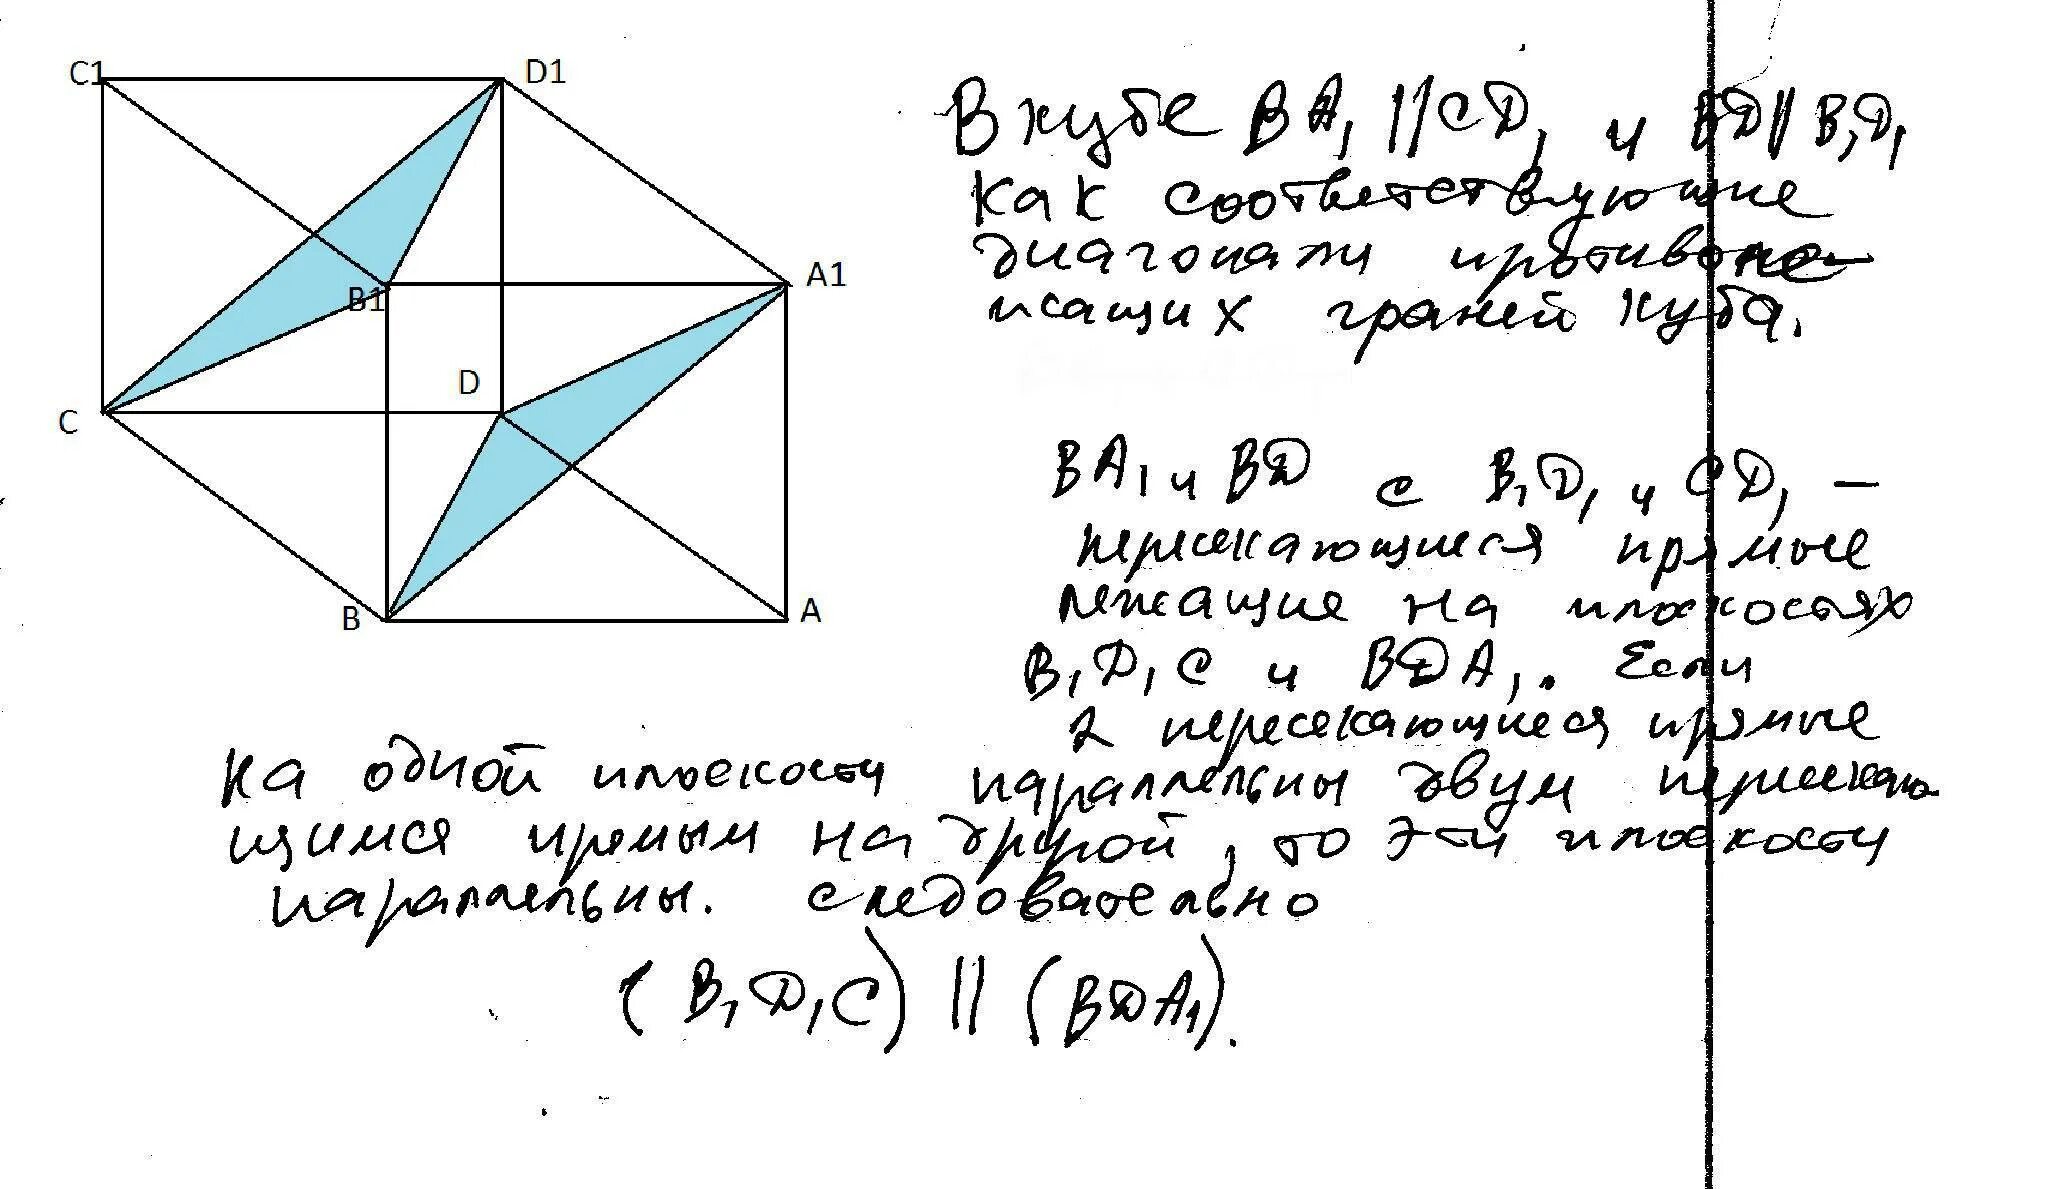 C1
D1
B1
A1
D
C
B
A
В кубе BA₁ || CD₁ и BD || B₁D₁
как соответствующие
диагонали противопо-
лежащих граней куба.
BA₁ и BD с B₁D₁ и CD₁ –
пересекающиеся прямые
лежащие на плоскостях
B₁D₁C и BDA₁. Если
2 пересекающиеся прямые
на одной плоскости параллельны двум пересекаю-
щимся прямым на другой, то эти плоскости
параллельны. следовательно
(B₁D₁C) || (BDA₁).